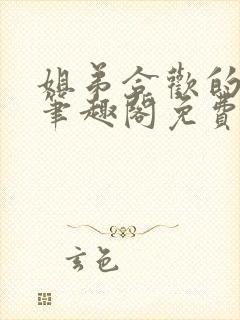 姐弟合歡的
筆趣閣免費
玄色